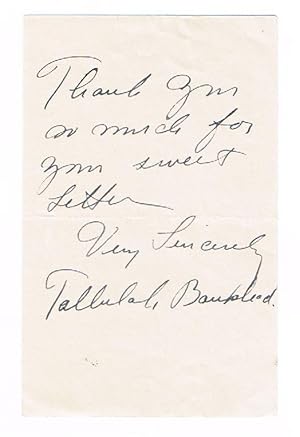 Thank you
so much for
your sweet
letter
Very Sincerely
Tallulah Bankhead.